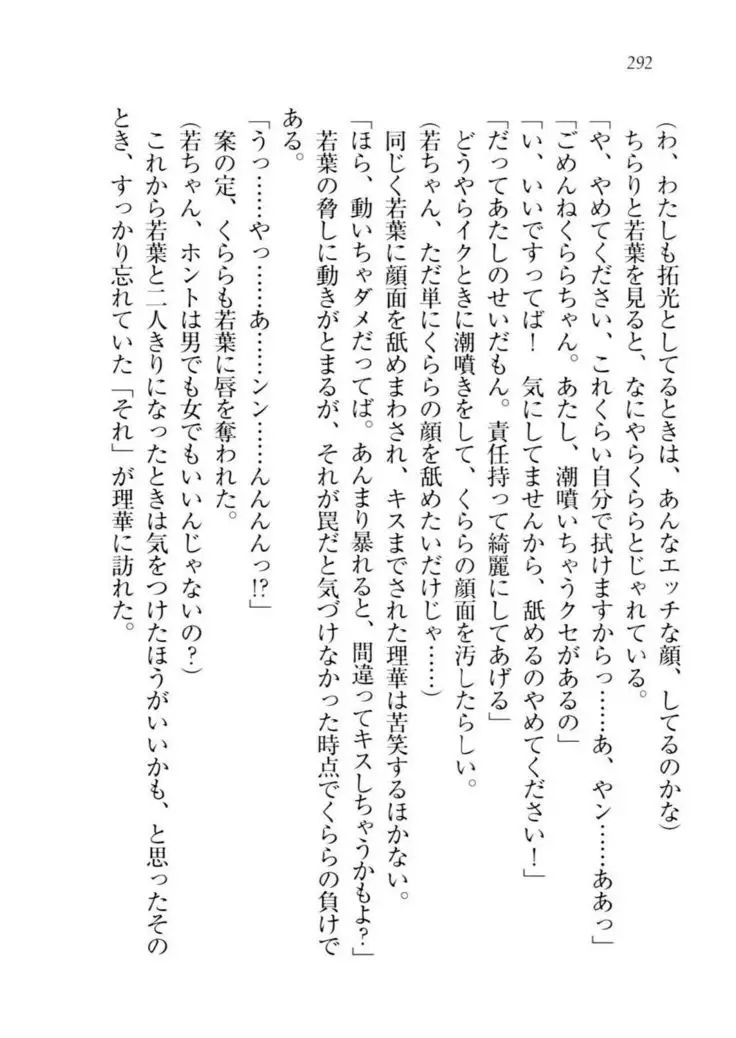 292
(わ、わたしも拓光としてるときは、あんなエッチな顔、してるのかな)
ちらりと若葉を見ると、なにやらくららとじゃれている。
「や、やめてください、これくらい自分で拭けますからっ……あ、やン……ああっ」
「ごめんねくららちゃん。あたし、潮噴いちゃうクセがあるの」
「い、いいですってば！　気にしてませんから、舐めるのやめてください！」
「だってあたしのせいだもん。責任持って綺麗にしてあげる」
どうやらイクときに潮噴きをして、くららの顔面を汚したらしい。
(若ちゃん、ただ単にくららの顔を舐めたいだけじゃ……)
同じく若葉に顔面を舐めまわされ、キスまでされた理華は苦笑するほかない。
「ほら、動いちゃダメだってば。あんまり暴れると、間違ってキスしちゃうかもよ？」
若葉の脅しに動きがとまるが、それが罠だと気づけなかった時点でくららの負けで
ある。
「うっ……やっ……あ……ンン……んんんんっ!?」
案の定、くららも若葉に唇を奪われた。
(若ちゃん、ホントは男でも女でもいいんじゃないの？)
これから若葉と二人きりになったときは気をつけたほうがいいかも、と思ったその
とき、すっかり忘れていた「それ」が理華に訪れた。